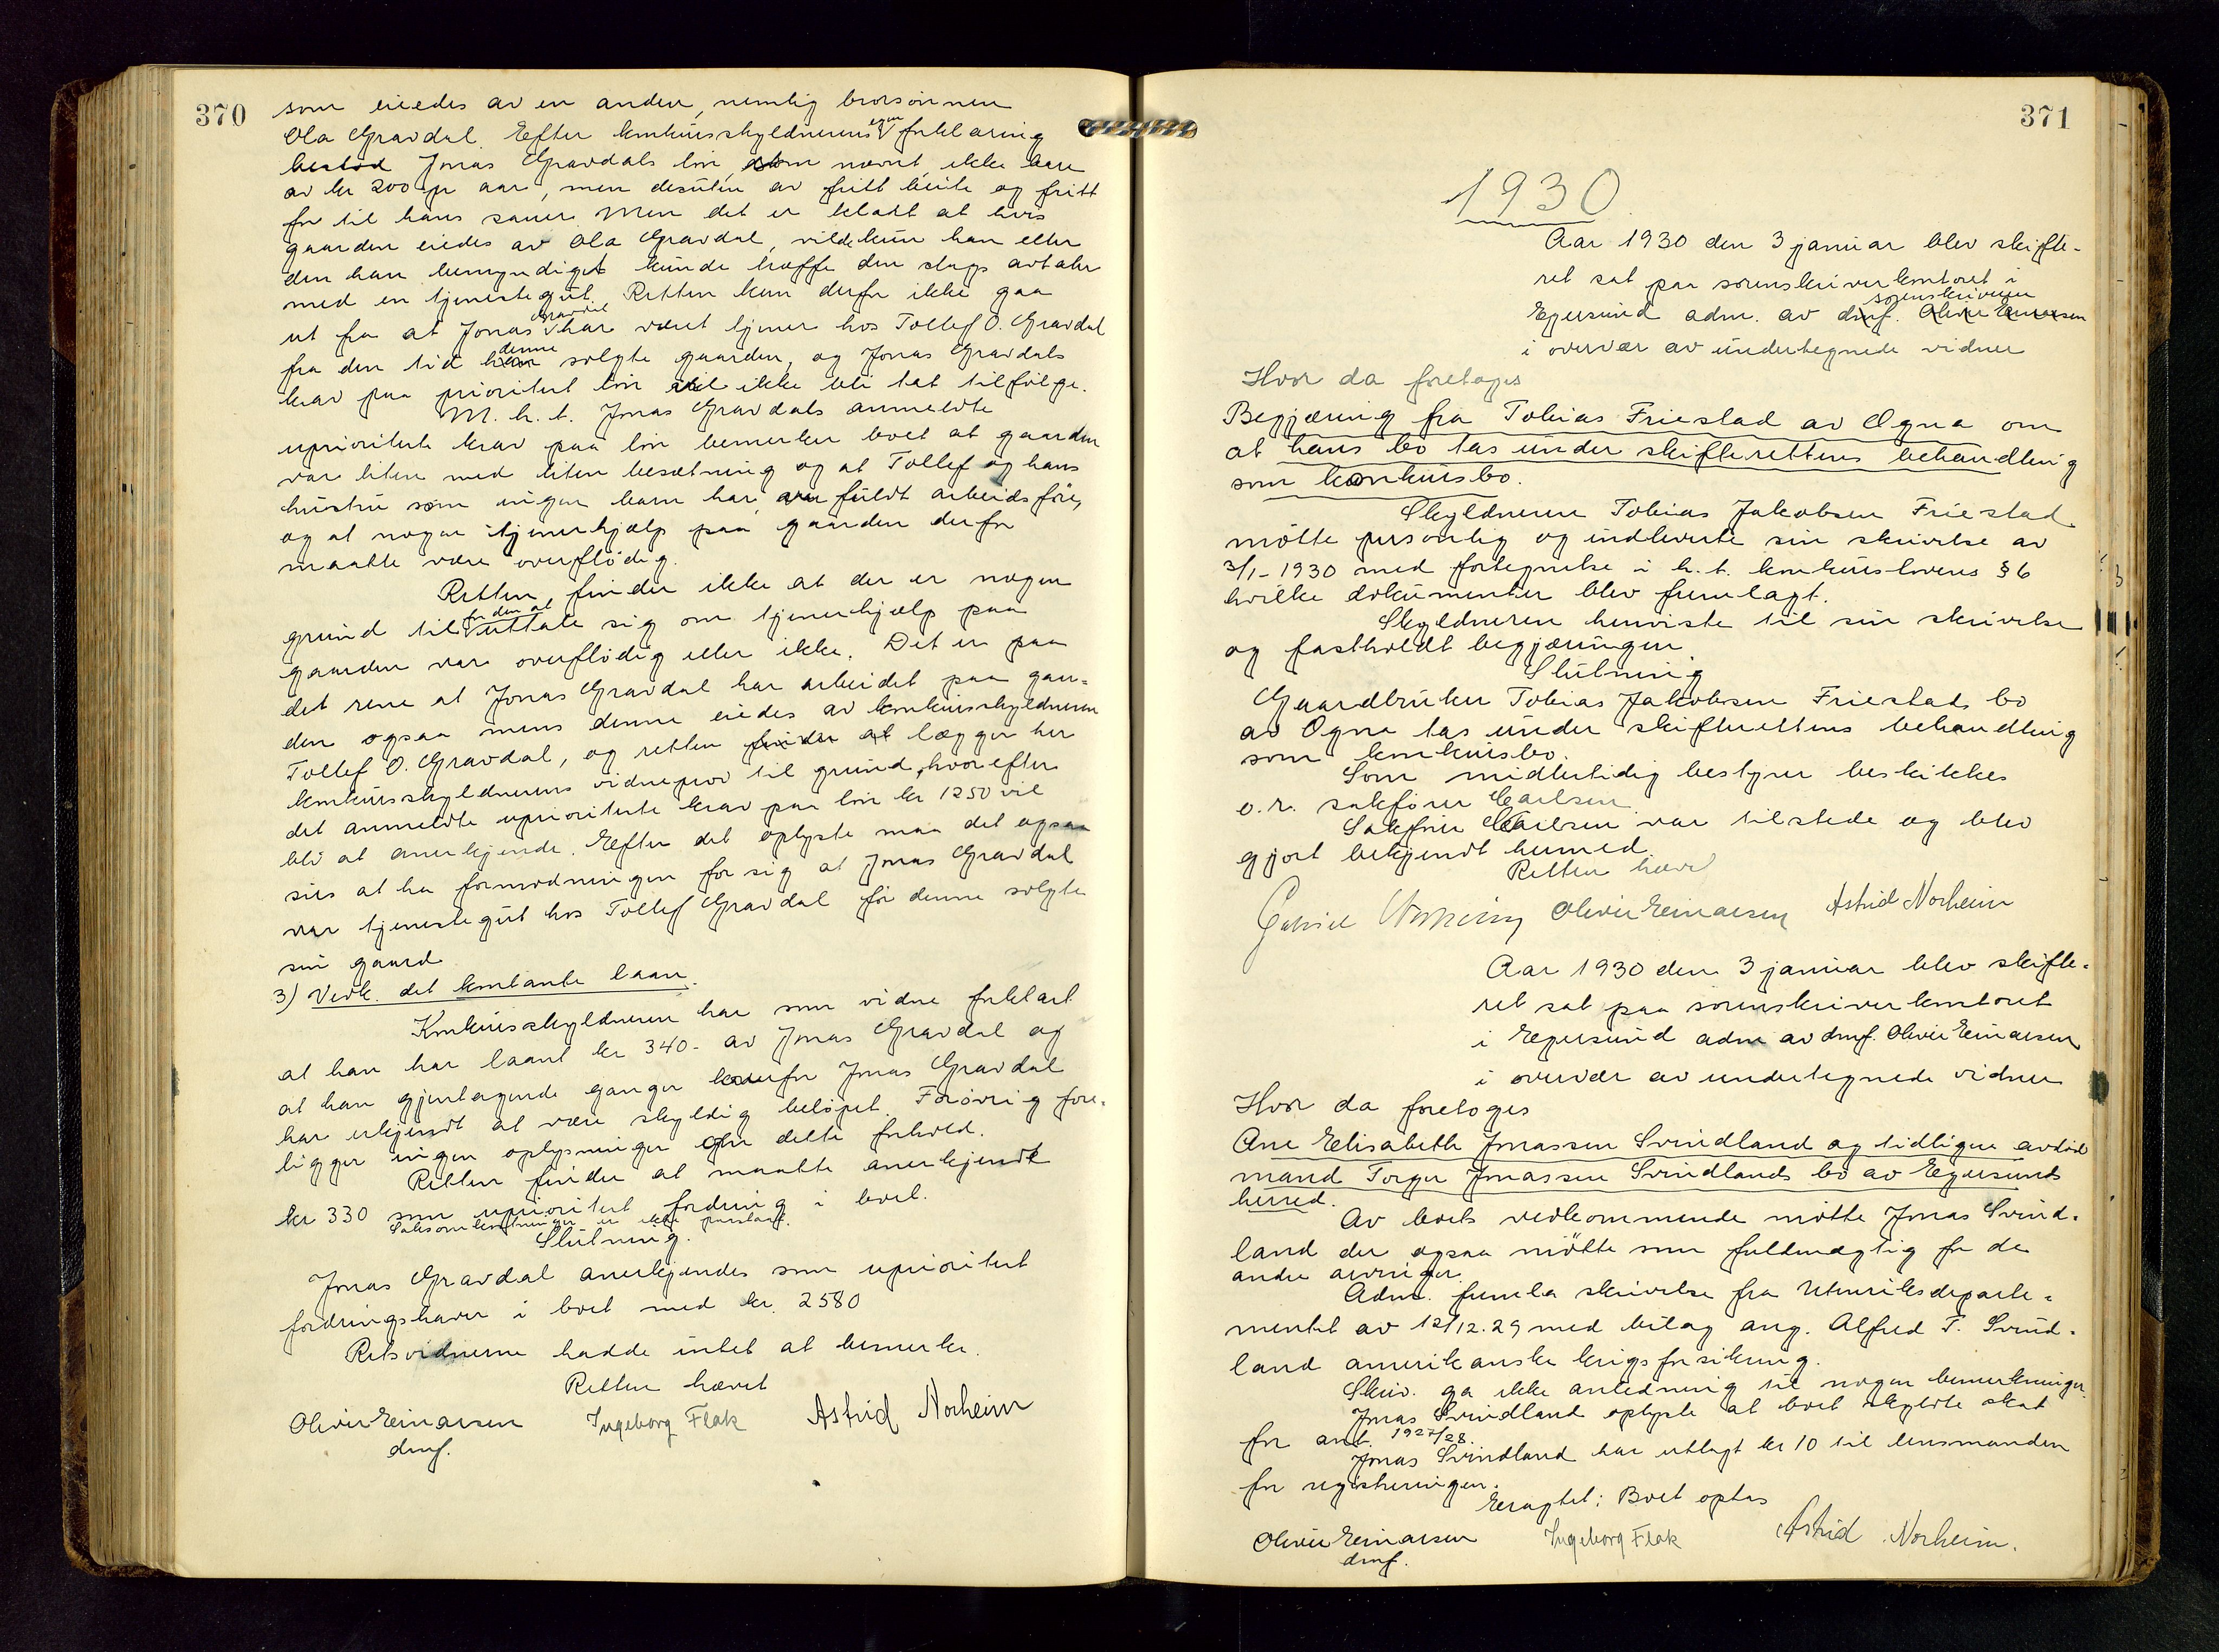 370
som eiedes av en anden, nemlig brorsønnen
Ola Gravdal. Efter konkursskyldnerens egen forklaring
bestod Jonas Gravdals løn, som nævnt, ikke bare
av kr 200 pr aar, men desuten av fritt beite og fritt
for til hans sauer. Men det er klart at hvis
gaarden eiedes av Ola Gravdal, vilde kun han eller
den han bemyndiget kunde træffe den slags avtaler
med en tjenestegut. Retten kan derfor ikke gaa
ut fra at Jonas Gravdal har været tjener hos Tollef O. Gravdal
fra den tid denne solgte gaarden, og Jonas Gravdals
krav paa prioritert løn vil ikke bli tat tilfølge.
M.h.t. Jonas Gravdals anmeldte
uprioriterte krav paa løn bemerker boet at gaarden
var liten med liten besætning og at Tollef og hans
hustru som ingen barn har, var fuldt arbeidsføre,
og at nogen tjenerhjælp paa gaarden derfor
maatte være overflødig.
Retten finder ikke at der er nogen
grund til for den at uttale sig om tjenerhjælp paa
gaarden var overflødig eller ikke. Det er paa
det rene at Jonas Gravdal har arbeidet paa gaar-
den ogsaa mens denne eiedes av konkursskyldneren
Tollef O. Gravdal, og retten finder at lægger her
konkursskyldnerens vidneprov til grund, hvorefter
det anmeldte uprioriterte krav paa løn kr 1250 vil
bli at anerkjende. Efter det oplyste maa det ogsaa
sies at ha formodningen for sig at Jonas Gravdal
var tjenestegut hos Tollef Gravdal før denne solgte
sin gaard.
3) Vedk. det kontante laan.
Konkursskyldneren har som vidne forklart
at han har laant kr 340.- av Jonas Gravdal og
at han gjentagende ganger overfor Jonas Gravdal
har erkjendt at være skyldig beløpet. Forøvrig fore-
ligger ingen oplysninger om dette forhold.
Retten finder at maatte anerkjende
kr 330 som uprioritert fordring i boet.
Saksomkostninger er ikke paastaat.
Slutning.
Jonas Gravdal anerkjendes som uprioritert
fordringshaver i boet med kr. 2580
Retsvidnerne hadde intet at bemerke.
Retten hævet
Olivier Einarsen Ingeborg Fløk Astrid Norheim
dmf.
371
1930
Aar 1930 den 3 januar blev skifte-
ret sat paa sorenskriverkontoret i
Egersund adm. av dmf. Olivier Einarsen sorenskriveren
i overvær av undertegnede vidner
Hvor da foretoges
Begjæring fra Tobias Friestad av Ogna om
at hans bo tas under skifterettens behandling
som konkursbo.
Skyldneren Tobias Jakobsen Friestad
møtte personlig og indleverte sin skrivelse av
3/1-1930 med fortegnelse i h.t. konkurslovens § 6
hvilke dokumenter blev fremlagt.
Skyldneren henviste til sin skrivelse
og fastholdt begjæringen.
Slutning
Gaardbruker Tobias Jakobsen Friestads bo
av Ogna tas under skifterettens behandling
som konkursbo.
Som midlertidig bestyrer beskikkes
o.r. sakfører Carlsen.
Sakfører Carlsen var tilstede og blev
gjort bekjendt hermed.
Retten hævet
Gabriel Olivier Einarsen Astrid Norheim
Aar 1930 den 3 januar blev skifte-
ret sat paa sorenskriverkontoret
i Egersund adm av dmf. Olivier Einarsen
i overvær av undertegnede vidner
Hvor da foretoges
Ane Elisabeth Jonassen Svindland og tidligere avdød
mand Torger Jonassen Svindlands bo av Egersunds
herred.
Av boets vedkommende møtte Jonas Svind-
land der ogsaa møtte som fuldmægtig for de
andre arvinger.
Adm. fremla skrivelse fra Utenriksdeparte-
mentet av 12/12.29 med bilag ang. Alfred T. Svind-
land amerikanske krigsforsikring.
Skriv. ga ikke anledning til nogen bemerkninger.
Jonas Svindland oplyste at boet skyldte skat
for aaret 1927/28.
Jonas Svindland har utlagt kr 10 til lensmanden
for registreringen.
Eragtet: Boet optas
Olivier Einarsen Ingeborg Fløk Astrid Norheim.
dmf.